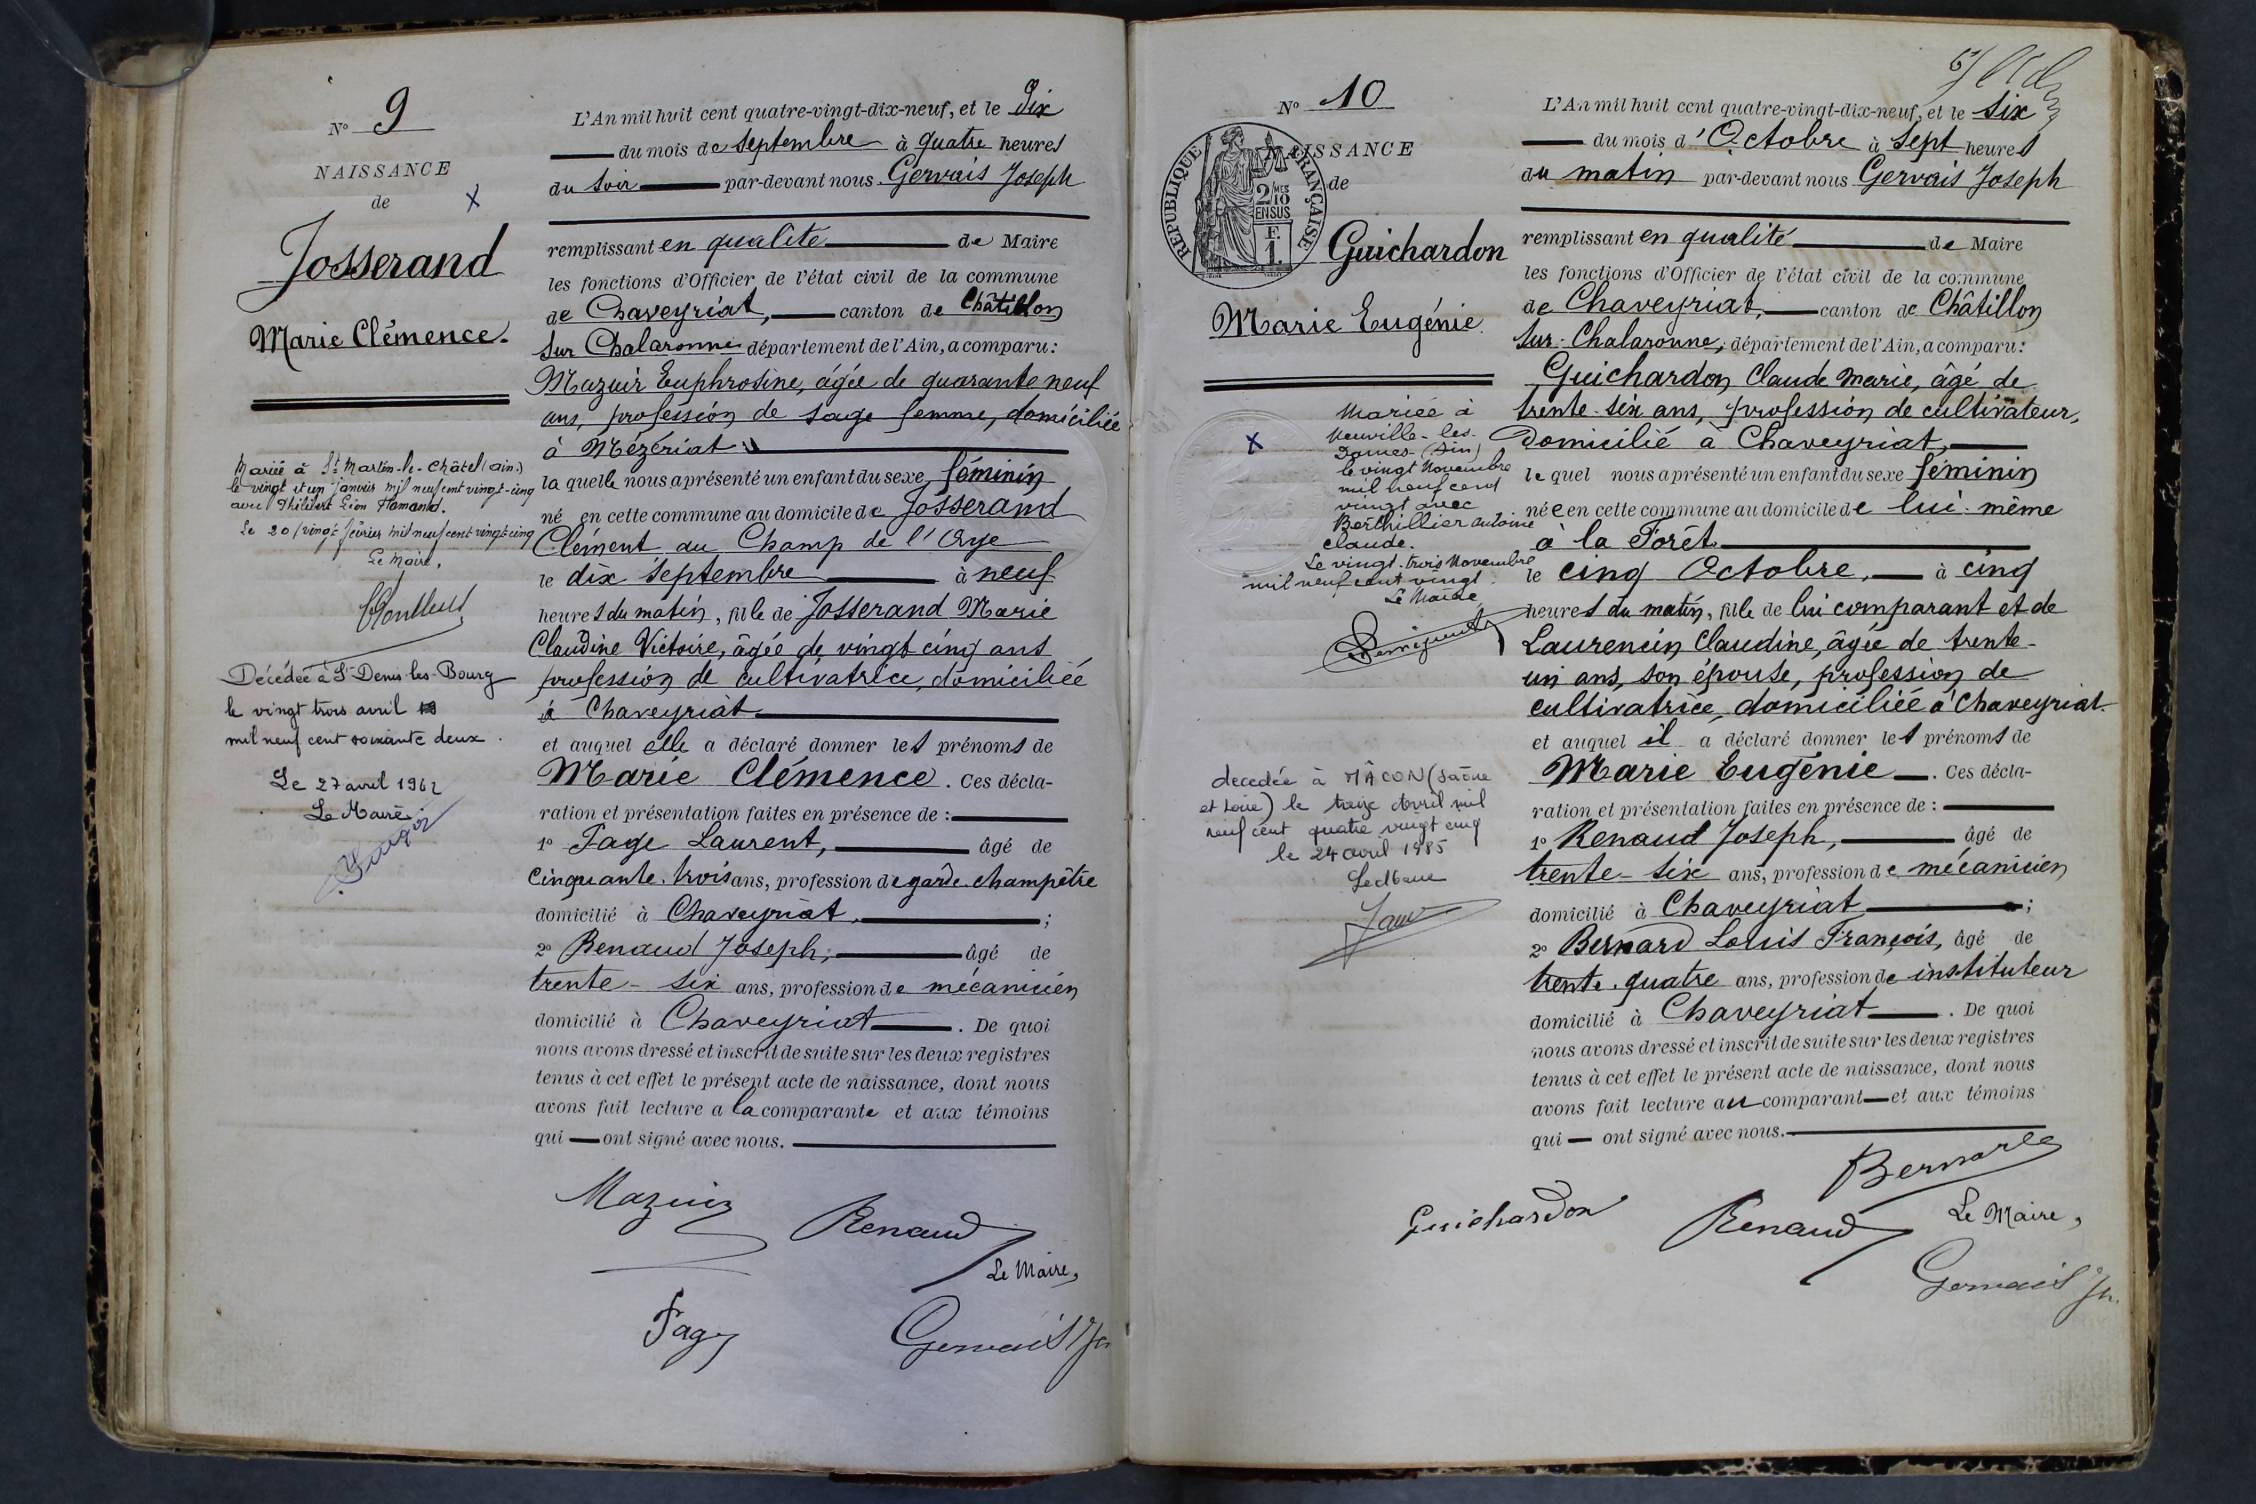 N° 9
NAISSANCE
de
Josserand
Marie Clémence.
Mariée à St Martin-le-Châtel (ain.)
le vingt et un janvier mil neuf cent vingt-cinq
avec Philibert Léon Flamand.
Le 20 (vingt février mil neuf cent vingt-cinq
Le Maire,
Décédée à St Denis-les-Bourg
le vingt trois avril
mil neuf cent soixante deux.
Le 27 avril 1962
Le Maire
L'An mil huit cent quatre-vingt-dix-neuf, et le Dix
du mois de septembre à quatre heures
du soir par-devant nous Gervais Joseph
remplissant en qualité de Maire
les fonctions d'Officier de l'état civil de la commune
de Chaveyriat, canton de Châtillon
sur Chalaronne département de l'Ain, a comparu:
Mazuir Euphrosine, âgée de quarante neuf
ans, profession de sage femme, domiciliée
à Mézériat
la quelle nous a présenté un enfant du sexe féminin
né en cette commune au domicile de Josserand
Clément au Champ de l'
le dix septembre à neuf
heures du matin, fille de Josserand Marie
Claudine Victoire, âgée de vingt cinq ans
profession de cultivatrice, domiciliée
à Chaveyriat
et auquel elle a déclaré donner les prénoms de
Marie Clémence. Ces décla-
ration et présentation faites en présence de :
1° Page Laurent, âgé de
cinquante-trois ans, profession de garde-champêtre
domicilié à Chaveyriat, ;
2° Renaud Joseph, âgé de
trente-six ans, profession de mécanicien
domicilié à Chaveyriat. De quoi
nous avons dressé et inscrit de suite sur les deux registres
tenus à cet effet le présent acte de naissance, dont nous
avons fait lecture a la comparante et aux témoins
qui ont signé avec nous.
Mazuir
Renaud
Le Maire,
Page
Gervais Jh
N° 10
NAISSANCE
de
REPUBLIQUE FRANÇAISE
2/10 MES
EN SUS
F.
1.
Guichardon
Marie Eugénie
Mariée à
Neuville-les-
Dames (Ain)
le vingt Novembre
mil neuf cent
vingt avec
Berthillier Antoine
Claude.
Le vingt-trois Novembre
mil neuf cent vingt.
Le Maire
decedée à MÂCON (Saône
et Loire) le treize Avril mil
neuf cent quatre vingt cinq
le 24 avril 1985
Le Maire
L'An mil huit cent quatre-vingt-dix-neuf, et le six
du mois d'Octobre à sept heures
du matin par-devant nous Gervais Joseph
remplissant en qualité de Maire
les fonctions d'Officier de l'état civil de la commune
de Chaveyriat, canton de Châtillon
sur-Chalaronne, département de l'Ain, a comparu:
Guichardon Claude Marie, âgé de
trente-six ans, profession de cultivateur,
domicilié à Chaveyriat,
le quel nous a présenté un enfant du sexe féminin
née en cette commune au domicile de lui-même
à la Forêt
le cinq Octobre, à cinq
heures du matin, fille de lui comparant et de
Laurencin Claudine, âgée de trente-
un ans, son épouse, profession de
cultivatrice, domiciliée à Chaveyriat.
et auquel il a déclaré donner les prénoms de
Marie Eugénie. Ces décla-
ration et présentation faites en présence de :
1° Renaud Joseph, âgé de
trente-six ans, profession de mécanicien
domicilié à Chaveyriat ;
2° Bernard Louis François, âgé de
trente-quatre ans, profession de instituteur
domicilié à Chaveyriat. De quoi
nous avons dressé et inscrit de suite sur les deux registres
tenus à cet effet le présent acte de naissance, dont nous
avons fait lecture au comparant et aux témoins
qui ont signé avec nous.
Bernard
Guichardon
Renaud
Le Maire,
Gervais Jh.